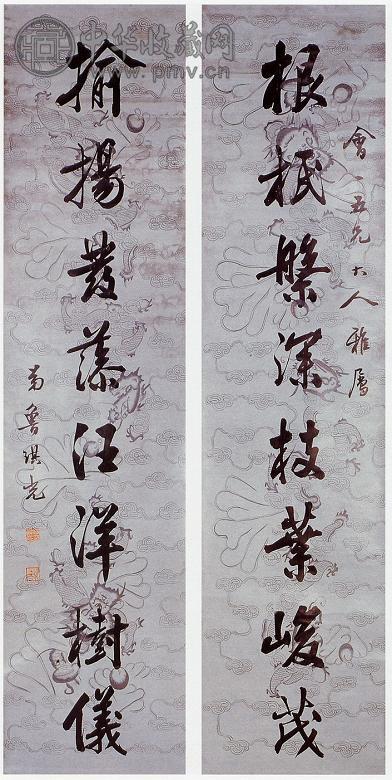 中华收藏网
www.pmv.cn
會一五兄大人雅屬
根柢槃深枝葉峻茂
揄揚發藻汪洋樹儀
弟魯琪光